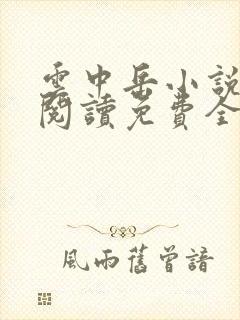 雲中岳小說
閱讀免費全
風雨舊曾諳